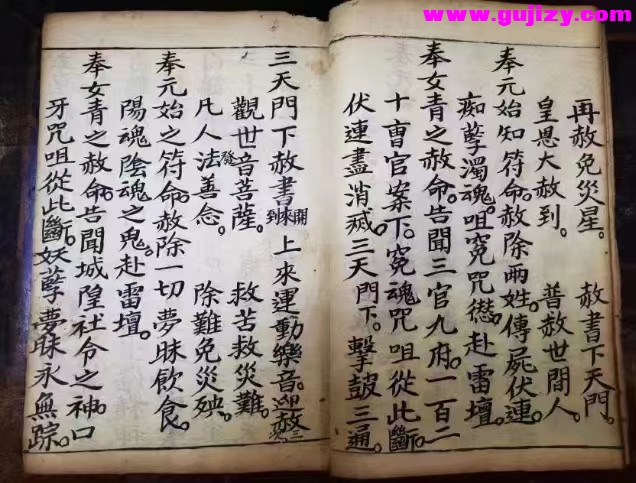 www.gujizy.com
再赦免災星。 赦書下天門。
皇恩大赦到。 普赦世間人。
奉元始知符命。赦除兩姓。傳屍伏連。
痴孽濁魂咀冤咒愆。赴雷壇。
奉女青之赦命。告聞三官九府一百二
十曹官案下。冤魂咒咀從此斷。
伏連盡消滅。三天門下。擊鼓三通。
三天門下赦書到來開 上來運動樂音。迎赦三
觀世音菩薩。 救苦救災難。
凡人法善念。 除難免災殃。
奉元始之符命。赦除一切夢眛飲食。
陽魂陰魂之鬼。赴雷壇。
奉女青之赦命。告聞城隍社令之神。口
牙咒咀從此斷。妖孽夢眛永無踪。